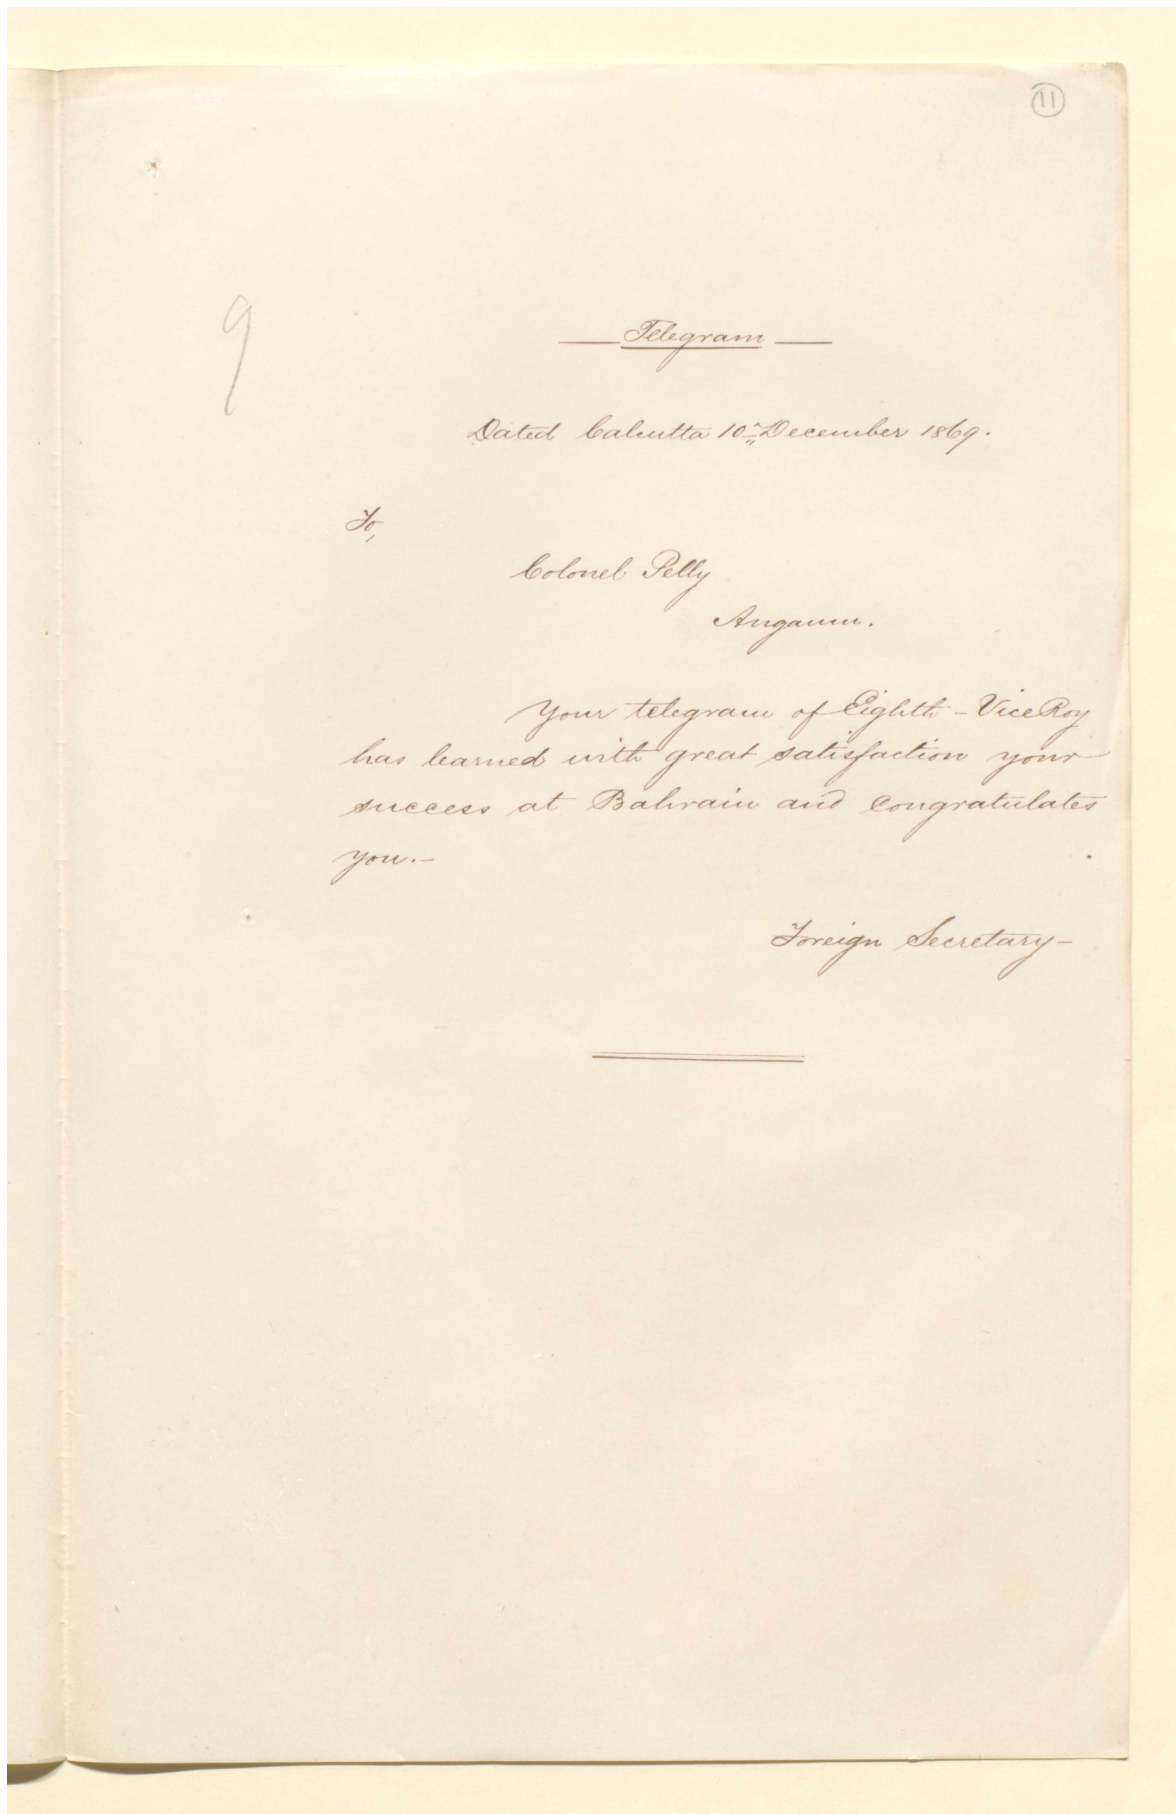 11
9
Telegram
Dated Calcutta 10th December 1869.
To,
Colonel Pelly
Angaum.
Your telegram of Eighth - ViceRoy
has learned with great satisfaction your
success at Bahrain and congratulates
you. -
Foreign Secretary -